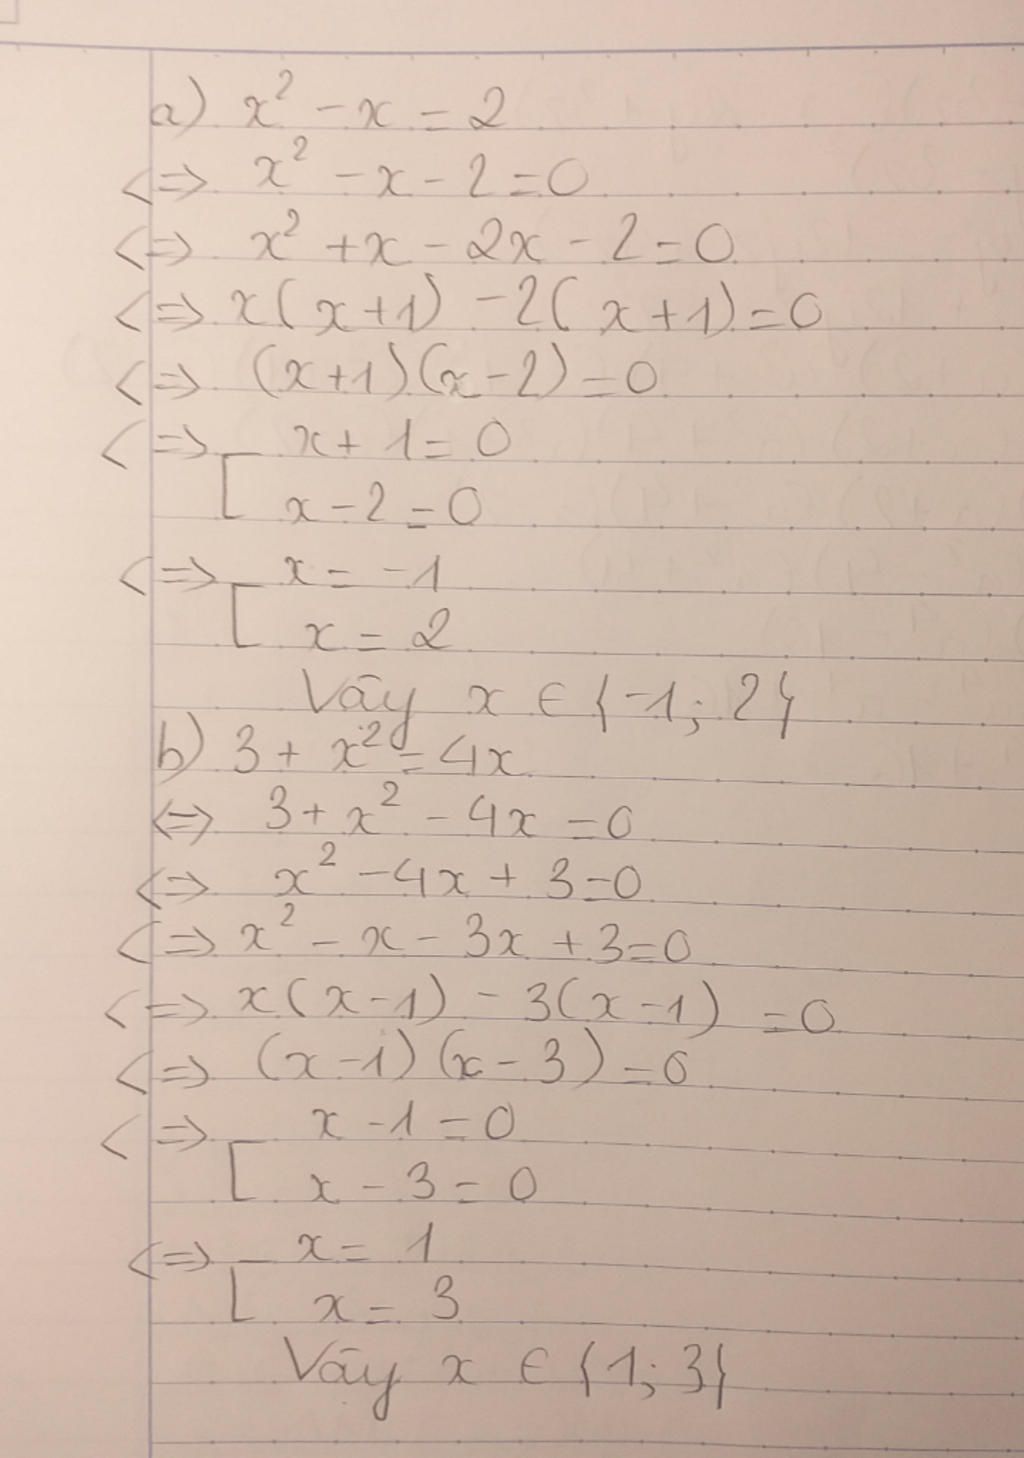 a) x² - x = 2
<=> x² - x - 2 = 0
<=> x² + x - 2x - 2 = 0
<=> x(x+1) - 2(x+1) = 0
<=> (x+1)(x-2) = 0
<=> [ x + 1 = 0
x - 2 = 0
<=> [ x = -1
x = 2
Vãy x ∈ {-1; 2}
b) 3 + x² = 4x
<=> 3 + x² - 4x = 0
<=> x² - 4x + 3 = 0
<=> x² - x - 3x + 3 = 0
<=> x(x-1) - 3(x-1) = 0
<=> (x-1)(x-3) = 0
<=> [ x - 1 = 0
x - 3 = 0
<=> [ x = 1
x = 3
Vãy x ∈ {1; 3}